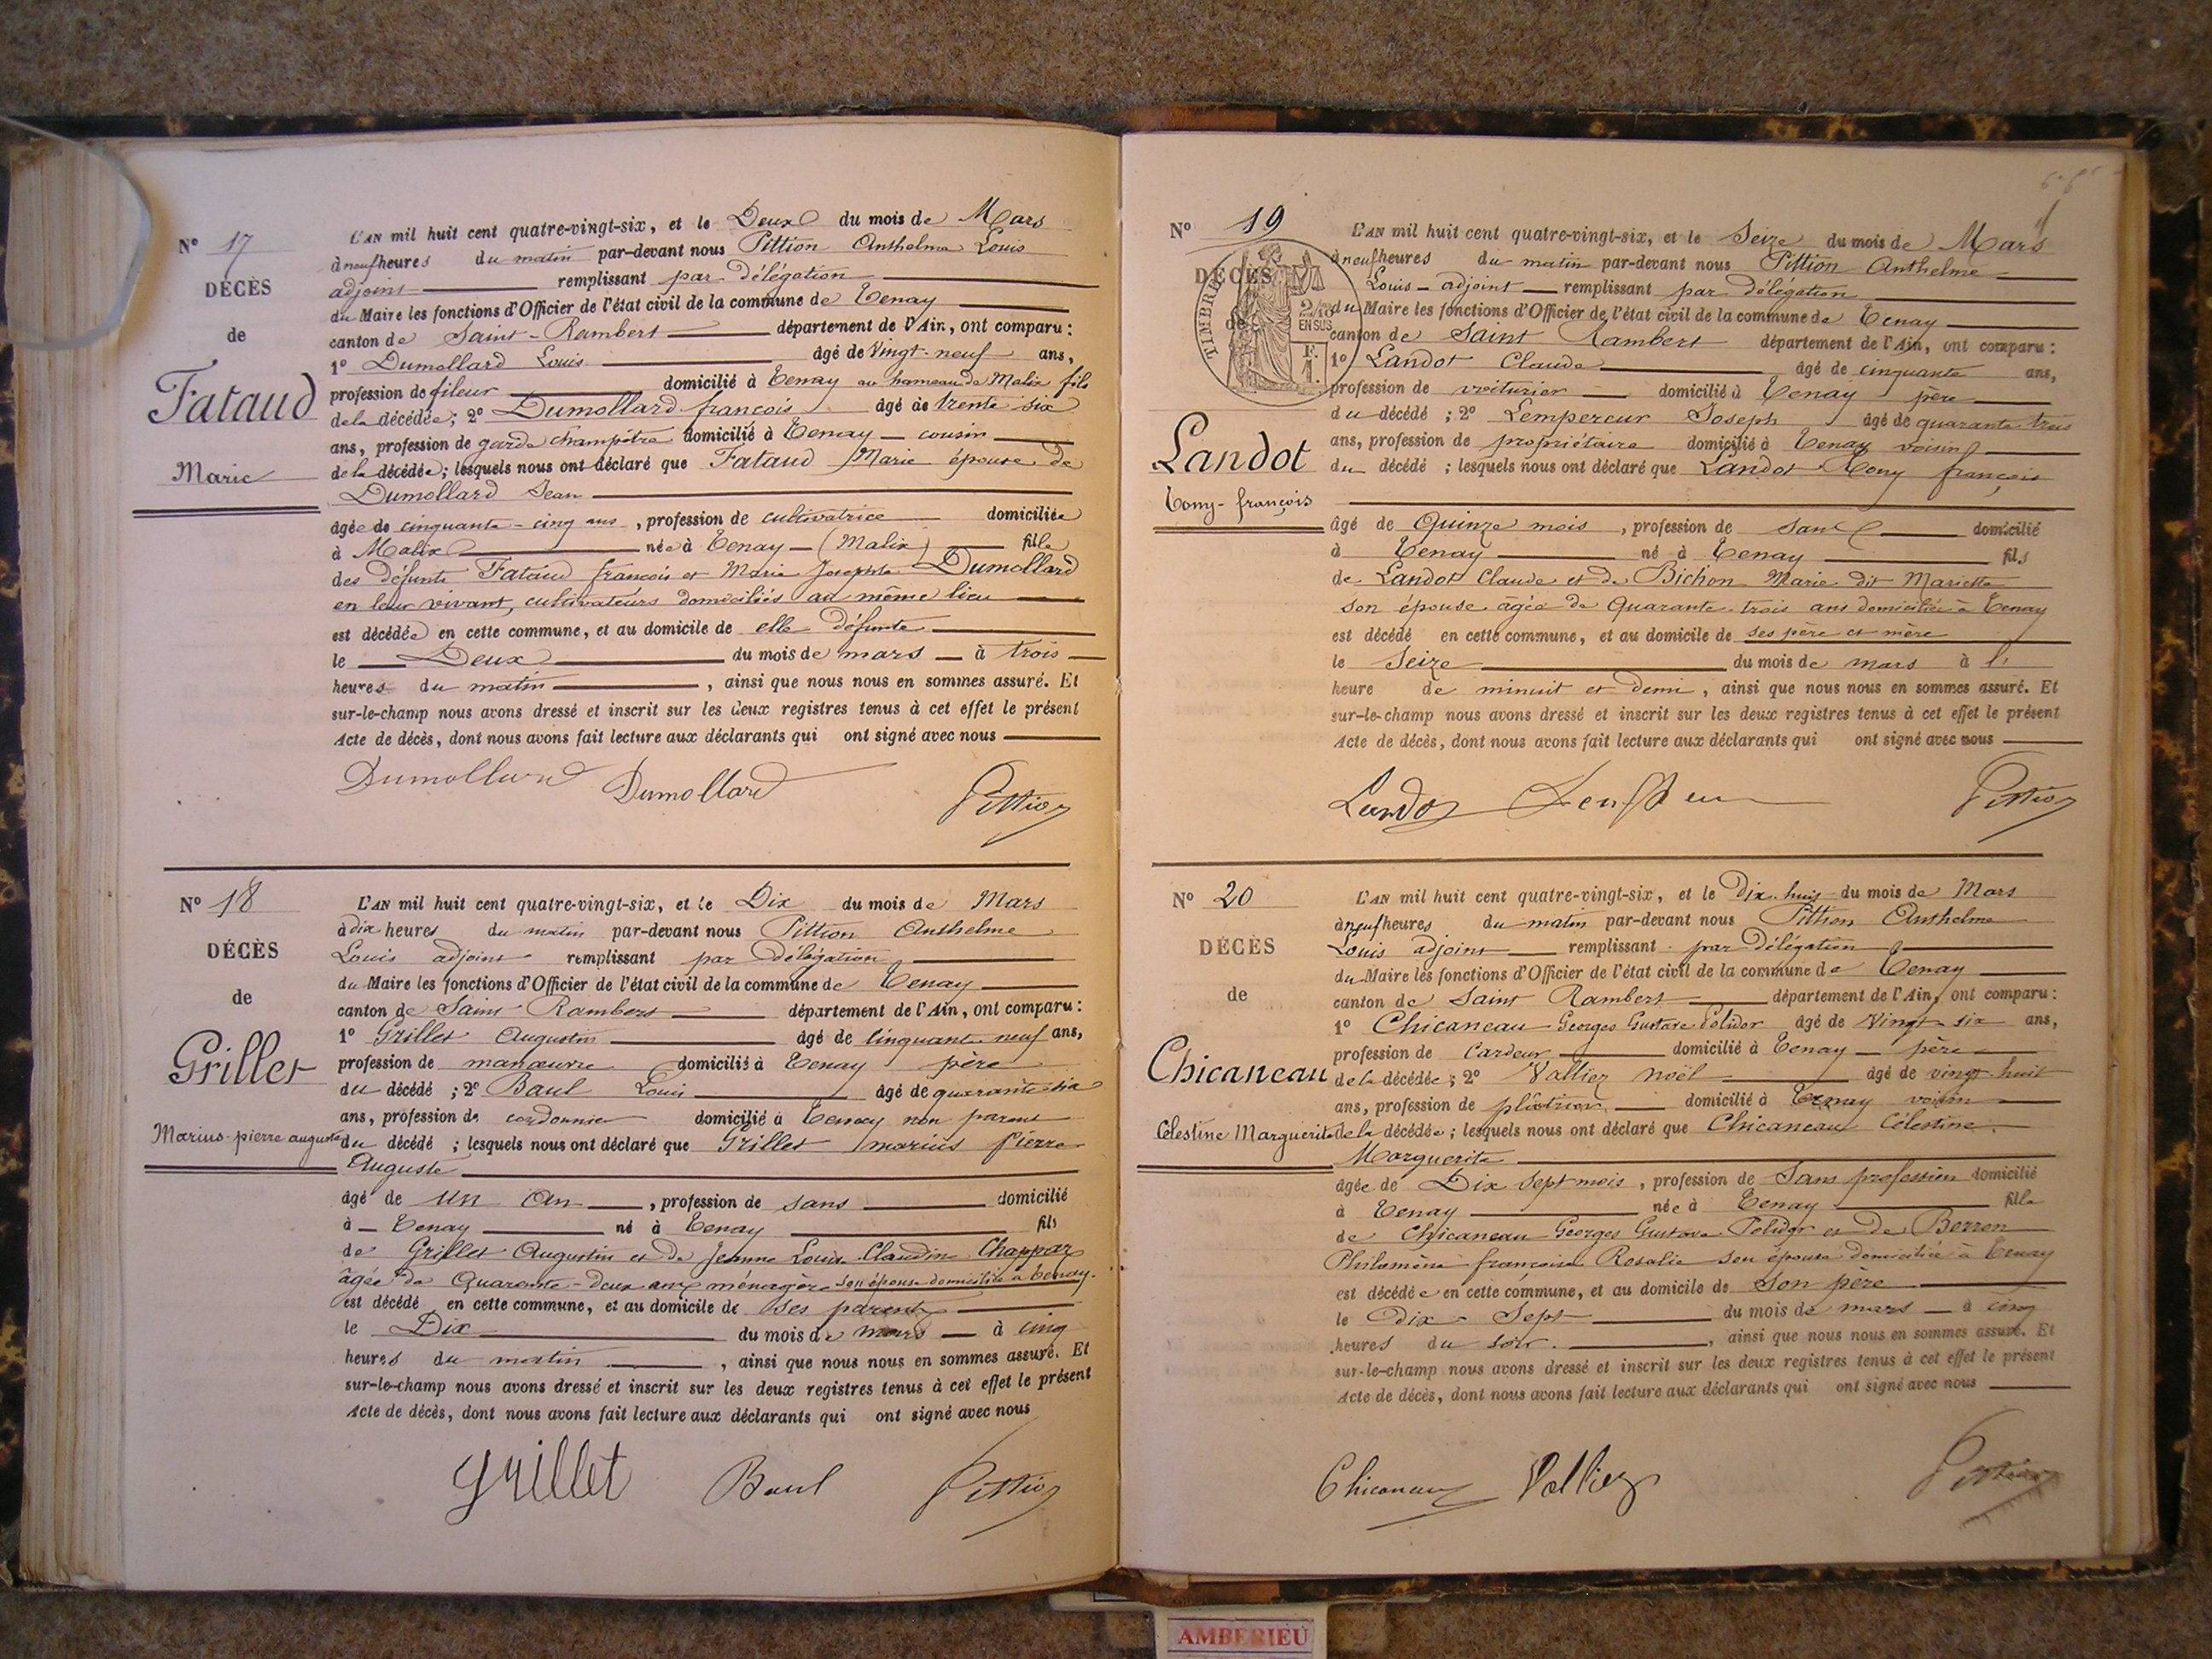 N° 17
DÉCÈS
de
Fataud
Marie
L'AN mil huit cent quatre-vingt-six, et le Deux du mois de Mars
à neuf heures du matin par-devant nous Pittion Anthelme Louis
adjoint remplissant par délégation
du Maire les fonctions d'Officier de l'état civil de la commune de Tenay
canton de Saint-Rambert département de l'Ain, ont comparu :
1° Dumollard Louis âgé de Vingt-neuf ans,
profession de fileur domicilié à Tenay au hameau de Malix fils
de la décédée ; 2° Dumollard françois âgé de trente six
ans, profession de garde champêtre domicilié à Tenay cousin
de la décédée ; lesquels nous ont déclaré que Fataud Marie épouse de
Dumollard Jean
âgée de cinquante-cinq ans, profession de cultivatrice domiciliée
à Malix née à Tenay (Malix) fille
des défunts Fataud françois et Marie Josephte Dumollard
en leur vivant, cultivateurs domiciliés au même lieu
est décédée en cette commune, et au domicile de elle défunte
le Deux du mois de mars à trois
heures du matin, ainsi que nous nous en sommes assuré. Et
sur-le-champ nous avons dressé et inscrit sur les deux registres tenus à cet effet le présent
Acte de décès, dont nous avons fait lecture aux déclarants qui ont signé avec nous
Dumollard Dumollard Pittion
N° 18
DÉCÈS
de
Grillet
Marius-pierre auguste
L'AN mil huit cent quatre-vingt-six, et le Dix du mois de Mars
à dix heures du matin par-devant nous Pittion Anthelme
Louis adjoint remplissant par délégation
du Maire les fonctions d'Officier de l'état civil de la commune de Tenay
canton de Saint Rambert département de l'Ain, ont comparu :
1° Grillet Augustin âgé de Cinquant neuf ans,
profession de manœuvre domicilié à Tenay père
du décédé ; 2° Baul Louis âgé de quarante six
ans, profession de cordonnier domicilié à Tenay non parent
du décédé ; lesquels nous ont déclaré que Grillet marius Pierre
Auguste
âgé de un An, profession de sans domicilié
à Tenay né à Tenay fils
de Grillet Augustin et de Jeanne Louise Claudine Chappaz
âgée de Quarante-deux ans ménagère son épouse domiciliée à Tenay.
est décédé en cette commune, et au domicile de ses parents
le Dix du mois de mars à cinq
heures du matin, ainsi que nous nous en sommes assuré. Et
sur-le-champ nous avons dressé et inscrit sur les deux registres tenus à cet effet le présent
Acte de décès, dont nous avons fait lecture aux déclarants qui ont signé avec nous
Grillet Baul Pittion
N° 19
DÉCÈS
de
TIMBRE
2/10
EN SUS
Landot
Tony-françois
L'AN mil huit cent quatre-vingt-six, et le Seize du mois de Mars
à neuf heures du matin par-devant nous Pittion Anthelme
Louis adjoint remplissant par délégation
du Maire les fonctions d'Officier de l'état civil de la commune de Tenay
canton de Saint Rambert département de l'Ain, ont comparu :
1° Landot Claude âgé de cinquante ans,
profession de voiturier domicilié à Tenay père
du décédé ; 2° Lempereur Joseph âgé de quarante trois
ans, profession de propriétaire domicilié à Tenay voisin
du décédé ; lesquels nous ont déclaré que Landot Tony françois
âgé de Quinze mois, profession de sans domicilié
à Tenay né à Tenay fils
de Landot Claude et de Bichon Marie dit Mariette
son épouse âgée de Quarante trois ans domiciliée à Tenay
est décédé en cette commune, et au domicile de ses père et mère
le Seize du mois de mars à l'
heure de minuit et demi, ainsi que nous nous en sommes assuré. Et
sur-le-champ nous avons dressé et inscrit sur les deux registres tenus à cet effet le présent
Acte de décès, dont nous avons fait lecture aux déclarants qui ont signé avec nous
Landot Pittion
N° 20
DÉCÈS
de
Chicaneau
Célestine Marguerite
L'AN mil huit cent quatre-vingt-six, et le Dix-huit du mois de Mars
à neuf heures du matin par-devant nous Pittion Anthelme
Louis adjoint remplissant par délégation
du Maire les fonctions d'Officier de l'état civil de la commune de Tenay
canton de Saint Rambert département de l'Ain, ont comparu :
1° Chicaneau Georges Gustave Polidor âgé de Vingt-six ans,
profession de Cardeur domicilié à Tenay père
de la décédée ; 2° Vallier noël âgé de vingt-huit
ans, profession de plâtrier domicilié à Tenay voisin
de la décédée ; lesquels nous ont déclaré que Chicaneau Célestine
Marguerite
âgée de Dix sept mois, profession de Sans profession domicilié
à Tenay née à Tenay fille
de Chicaneau Georges Gustave Polidor et de Berron
Philomène françoise Rosalie son épouse domiciliée à Tenay
est décédée en cette commune, et au domicile de Son père
le Dix Sept du mois de mars à cinq
heures du soir, ainsi que nous nous en sommes assuré. Et
sur-le-champ nous avons dressé et inscrit sur les deux registres tenus à cet effet le présent
Acte de décès, dont nous avons fait lecture aux déclarants qui ont signé avec nous
Chicaneau Vallier Pittion
AMBERIEU